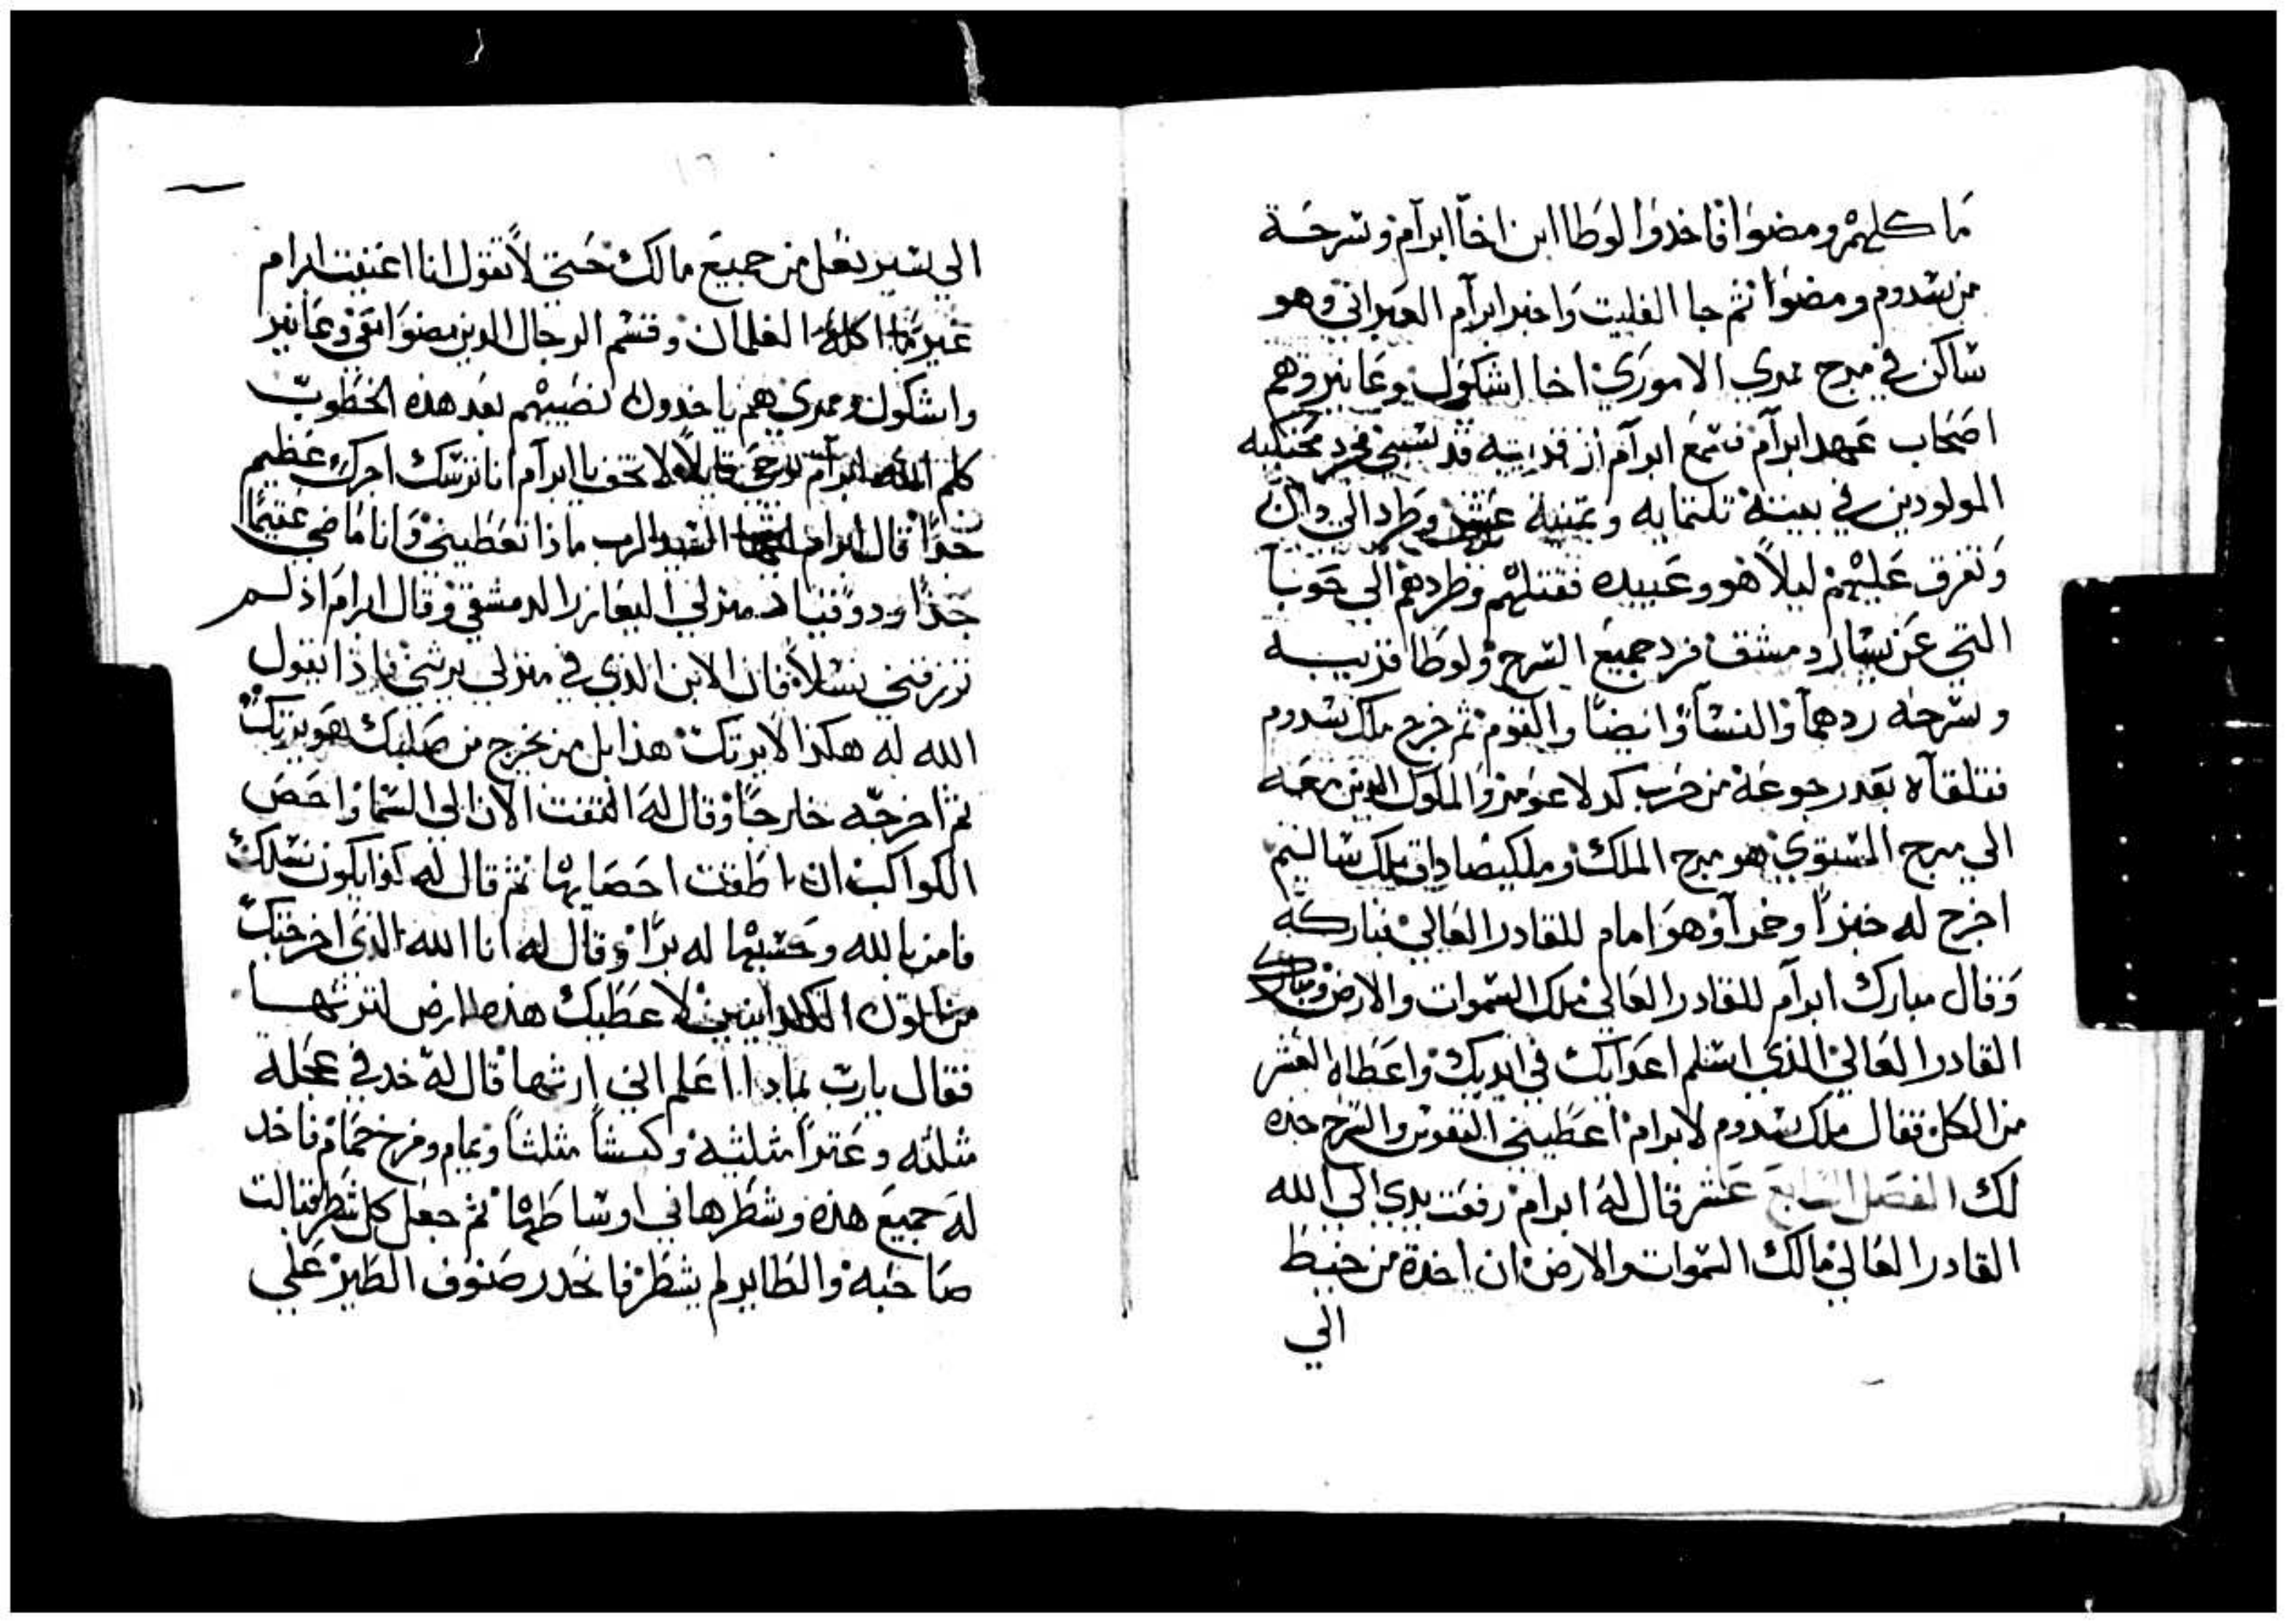 ما كلهم ومضوا فاخدوا لوطا ابن اخا ابرآم وسرحة
من سدوم ومضوا ثم جا الفليت واخبر ابرآم العبراني وهو
ساكن في مرج ممري الاموري اخا اشكول وعانير وهم
اصحاب عهد ابرآم فسمع ابرآم ان قريبه قد سبي فجرد محنكيه
المولودين في بيته تلتمايه وتمنية عشر وطرد الي دان
وتفرق عليهم ليلاً هو وعبيده فقتلهم وطردهم الي حوبا
التي عن يسار دمشق فرد جميع السرح ولوطا قريبه
وسرحه ردهما والنسآ وايضا والقوم ثم خرج ملك سدوم
فتلقآه بعد رجوعه من حرب كدلاعومر والملوك الدين معه
الي مرج المستوي هو مرج الملك وملكيصاداق ملك ساليم
اخرج له خبزاً وخمرآ وهو امام للقادر العالي فباركه
وقال مبارك ابرآم للقادر العالي ملك السموات والارض وتبارك
القادر العالي الذي اسلم اعدايك في ايديك واعطاه العشر
من الكل فقال ملك سدوم لابرام اعطيني النفوس والسرح خده
لك الفصل السابع عشر قال له ابرام رفعت يدي الي الله
القادر العالي مالك السموات والارض ان اخدة من خيط
الي
الي سير نعل من جميع مالك حتي لا تقول انا اغنيت ابرام
غير ما اكله الغلمان وقسم الرجال الدين مضوا معي وعانير
واشكول وممري هم ياخدون نصيبهم بعد هذه الخطوب
كلم الله ابرآم بوحي قايلاً لا تخف يا ابرآم انا ترسك اجرك عظيم
جداً قال ابرام السيد الرب ماذا تعطيني وانا ماضي عقيماً
جداً ودو قنياد منزلي اليعازر الدمشقي وقال ابرام اذ لم
ترزقني نسلاً فان الابن الذي في منزلي يرثني فاذا بقول
الله له هكذا لا يرتك هذا بل من يخرج من صلبك هو يرتك
ثم اخرجه خارجاً وقال له التفت الان الي السما واحص
الكواكب ان اطقت احصايها ثم قال له كذا يكون نسلك
فامن بالله وحسبها له براً وقال له انا الله الذي اخرجتك
من اتون الكلدانيين لاعطيك هذه الارض لترثها
فقال يارب بماذا اعلم اني ارثها قال له خد في عجلة
مثلثه وعنزاً مثلثه وكبشاً مثلثاً ويمام وفرخ حمام فاخد
له جميع هذه وشطرها في اوساطها ثم جعل كل شطر قبالت
صاحبه والطاير لم يشطر فانحدر صنوف الطير علي